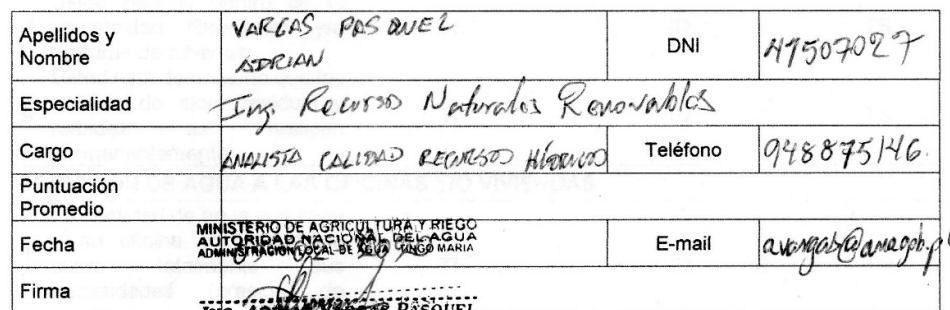 Apellidos y Nombre VARGAS PASQUEL ADRIAN DNI 41507027
Especialidad Ing. Recursos Naturales Renovables
Cargo ANALISTA CALIDAD RECURSOS HÍDRICOS Teléfono 948875146.
Puntuación Promedio
MINISTERIO DE AGRICULTURA Y RIEGO
AUTORIDAD NACIONAL DEL AGUA
ADMINISTRACION LOCAL DE AGUA TINGO MARIA
Fecha E-mail
Firma
Ing. ADRIAN VARGAS PASQUEL